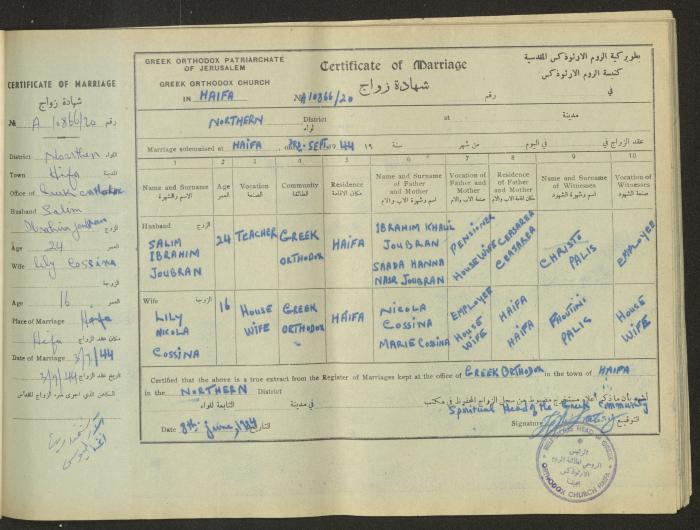 CERTIFICATE OF MARRIAGE
شهادة زواج
№ A 10866/20 رقم
District Northern لواء
Town Haifa المدينة
Office of Greek Orthodox
Husband Salim
Ibrahim Joubran الزوج
Age 24 العمر
Wife Lily Cossina
الزوجة
Age 16 العمر
Place of Marriage Haifa
Haifa مكان عقد الزواج
Date of Marriage 3/9/44
3/9/44 تاريخ عقد الزواج
GREEK ORTHODOX PATRIARCHATE
OF JERUSALEM
GREEK ORTHODOX CHURCH
IN HAIFA
Certificate of Marriage
شهادة زواج
№ A 10866/20 رقم
بطريركية الروم الارثوذكس المقدسية
كنيسة الروم الارثوذكس
في
NORTHERN District لواء at مدينة
Marriage solemnised at HAIFA on 3RD. SEPT. 1944 ١٩ سنة من شهر في اليوم عقد الزواج في
1 2 3 4 5 6 7 8 9 10
Name and Surname الاسم والشهرة
Age العمر
Vocation الصنعة
Community الطائفة
Residence مكان الاقامة
Name and Surname of Father and Mother اسم وشهرة الاب والام
Vocation of Father and Mother صنعة الاب والام
Residence of Father and Mother مكان اقامة الاب والام
Name and Surname of Witnesses اسم وشهرة الشهود
Vocation of Witnesses صنعة الشهود
Husband الزوج
SALIM IBRAHIM JOUBRAN
24
TEACHER
GREEK ORTHODOX
HAIFA
IBRAHIM KHALIL JOUBRAN
SAADA HANNA NASR JOUBRAN
PENSIONER
HOUSE WIFE
CEASAREA
CEASAREA
CHRISTO PALIS
EMPLOYEE
Wife الزوجة
LILY NICOLA COSSINA
16
HOUSE WIFE
GREEK ORTHODOX
HAIFA
NICOLA COSSINA
MARIE COSSINA
EMPLOYEE
HOUSE WIFE
HAIFA
HAIFA
FHOUTINI PALIS
HOUSE WIFE
Certified that the above is a true extract from the Register of Marriages kept at the office of GREEK ORTHODOX in the town of HAIFA
in the NORTHERN District التابعة للواء في مدينة
Spiritual Head of the Greek Community
Date 8th June, التاريخ
Signature التوقيع
RELIGIOUS HEAD OF GREEK
ORTHODOX CHURCH HAIFA
الرئيس
الروحي لطائفة الروم
الارثوذكس
بحيفا